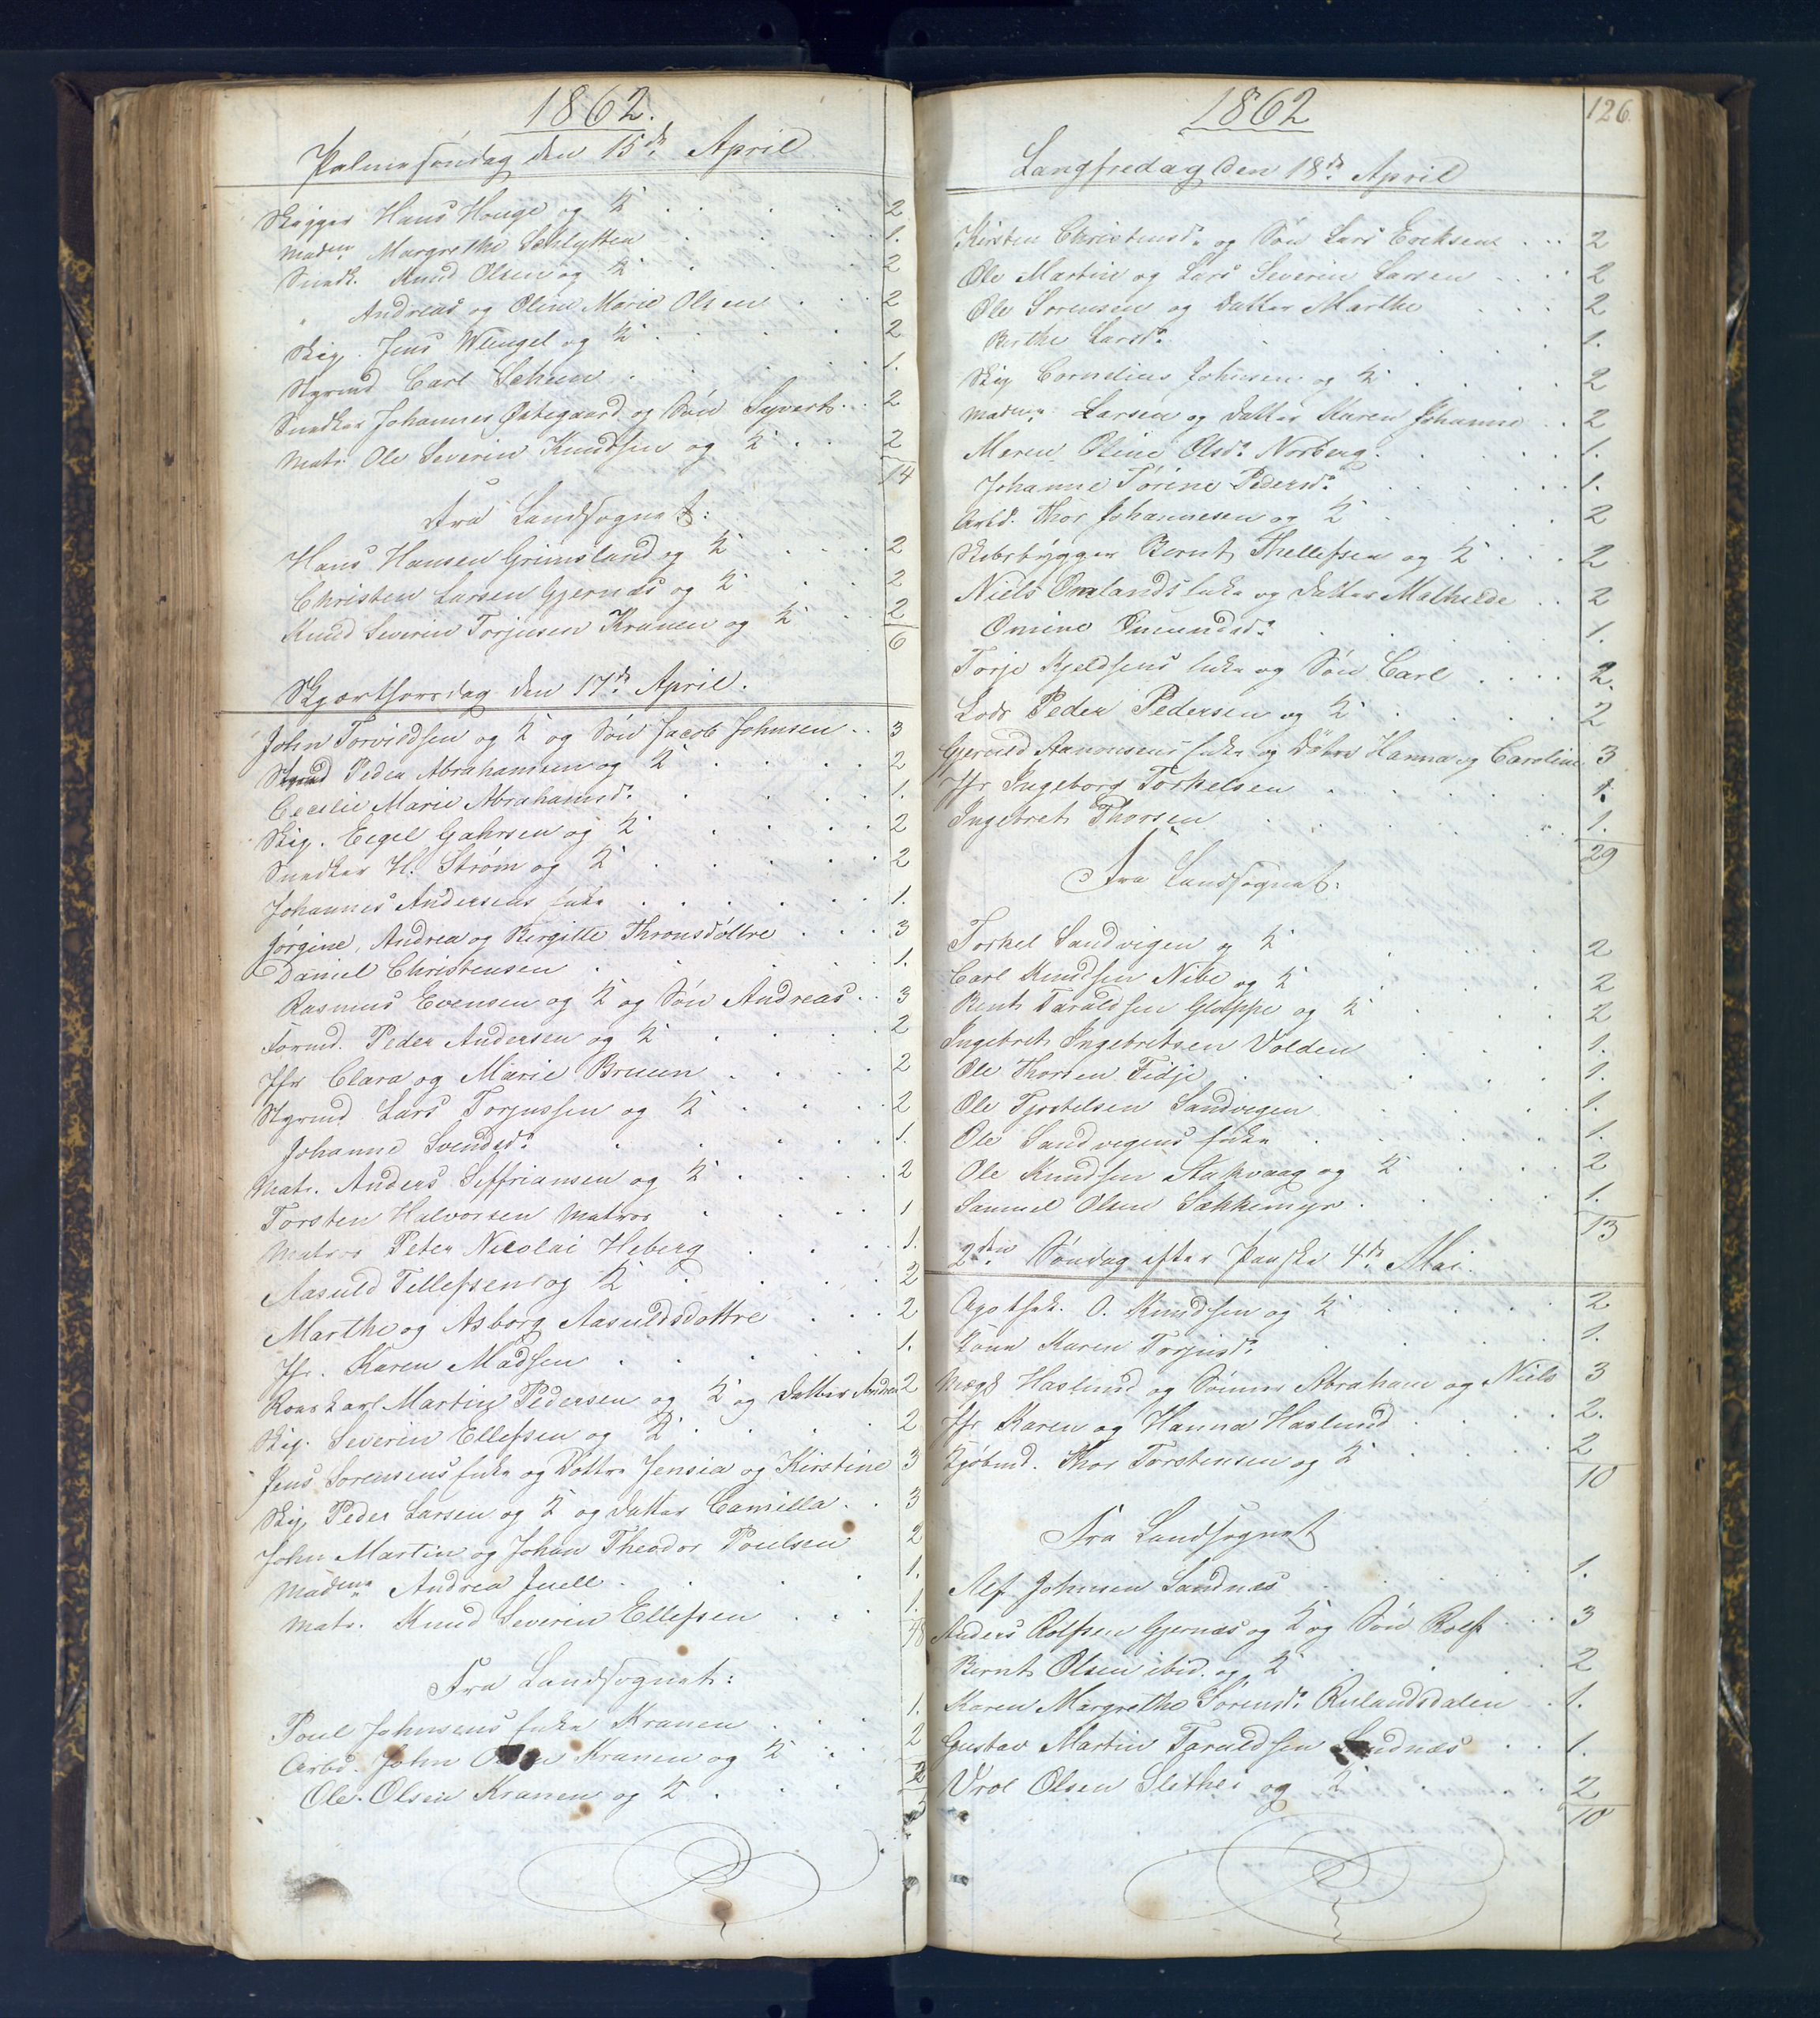 1862.
Palmesøndag den 15de April
Skipper Hans Houge og K 2
Madme Margrethe Schlytter 1.
Snedk. Knud Olsen og K 2
" Andreas og Oline Marie Olsen 2
Skip. Jens Wengel og K 2
Styrmd Carl Schun 1.
Snedker Johannes Østegaard og Søn Syvert 2
Matr. Ole Severin Knudsen og K 2
14
Fra Landsognet:
Hans Hansen Grimsland og K 2
Christen Larsen Gjernæs og K 2
Knud Severin Torjusen Kranen og K 2
6
Skjærthorsdag den 17de April.
John Torvildsen og K og Søn Jacob Johnsen 3
Peder Abrahamsen og K 2
Cecelie Marie Abrahamsd. 1.
Skip. Eegel Gahrsen og K 2
Snedker H. Strøm og K 2
Johannes Andersens Enke 1.
Jørgine, Andrea og Birgitte Thronsdøttre 3
Daniel Christensen 1.
Rasmus Evensen og K og Søn Andreas 3
Formd. Peder Andersen og K 2
Jfr Clara og Marie Bruun 2
Styrmd Lars Torjussen og K 2
Johanne Svendsd. 1.
Matr. Anders Seffriansen og K 2
Torsten Halvorsen Matros 1
Matros Peter Nicolai Heberg 1.
Aasuld Tellefsen og K 2
Marthe og Asborg Aasuldsdøttre 2
Jfr. Karen Madsen 1.
Martin Pedersen og K og Datter Andrea 2
Skip. Severin Ellefsen og K 2
Jens Sørensens Enke og Døttre Jensia og Kirstine 3
Skip. Peder Larsen og K og Datter Camilla 3
John Martin og Johan Theodor Poulsen 2
Madme Andrea Juell 1.
Matr. Knud Severin Ellefsen 1.
48
Fra Landsognet:
Poul Johnsens Enke Kranen 1.
Arbd. John Kranen og K 2
Ole Olsen Kranen og K 2
126.
1862
Langfredag den 18de April
Kirsten Christensd. og Søn Lars Eriksen 2
Ole Martin og Lars Severin Larsen 2
Ole Sørensen og Datter Marthe 2
Berthe Larsd. 1.
Skip Cornelius Johnsen og K 2
Madme Larsen og Datter Karen Johanne 2
Maren Oline Olsd. Norberg 1.
Johanne Tørine Pedersd. 1.
Arbd. Thor Johannesen og K 2
Skibsbygger Bernt Thellefsen og K 2
Niels Omlands Enke og Datter Mathilde 2
Omine Omundsd. 1.
Torje Kjeldsens Enke og Søn Carl 2.
Lods Peder Pedersen og K 2
Gjeruld Aanonsens Enke og Døttre Hanna og Caroline 3
Jfr Ingeborg Torkelsen 1.
Ingebret Thorsen 1.
29
Fra Landsognet:
Torkel Sandvigen og K 2
Carl Knudsen Nibe og K 2
Bent Taraldsen Gloppe og K 2
Ingebret Ingebretsen Volden 1.
Ole Thorsen Fidje 1.
Ole Tjostelsen Sandvigen 1.
Ole Sandvigens Enke 1.
Ole Knudsen Stakvaag og K 2
Samuel Olsen Sakkemyr 1.
13
2den Søndag efter Paaske 4de Mai.
Apothek. O. Knudsen og K 2
Karen Torjusd. 1.
Mægl Haslund og Sønner Abraham og Niels 3
Jfr Karen og Hanna Haslund 2.
Kjøbmd. Thor Torstensen og K 2
10
Fra Landsognet
Alf Johnsen Sandnæs 1.
Anders Rolfsen Gjernæs og K og Søn Rolf 3
Bernt Olsen ibid. og K 2
Karen Margrethe Sørensd. Rulandsdalen 1.
Gustav Martin Taraldsen Sandnæs 1.
Vrol Olsen Slethei og K 2
10